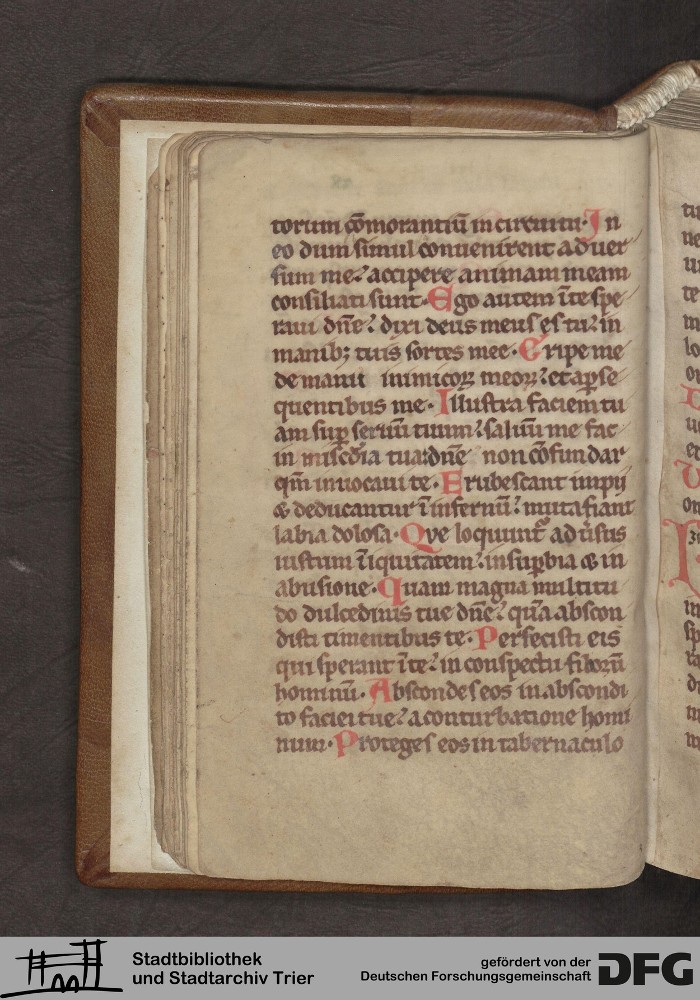 torum c̄omorantiū in circuitu. In
eo dum simul conuenirent aduer
sum me: accipere animam meam
consiliati sunt. Ego autem ī te spe
raui dn̄e: dixi deus meus es tu: in
manibꝫ tuis sortes mee. Eripe me
de manu inimicoꝝ meoꝝ: et a ꝑse
quentibus me. Illustra faciem tu
am suꝑ seruū tuum: saluū me fac
in mis̄cdia tua: dn̄e non c̄ofundar
qm̄ inuocaui te. Erubescant impij
& deducantur ī infernū: muta fiant
labia dolosa. Que loquunt᷑ aduͥsus
iustum īiquitatem: in suꝑbia & in
abusione. Quam magna multitu
do dulcedinis tue dn̄e: quā abscon
disti timentibus te. Perfecisti eis
qui sperant ī te: in conspectu filiorū
hominū. Abscondes eos in abscondi
to faciei tue: a conturbatione homi
num. Proteges eos in tabernaculo
Stadtbibliothek
und Stadtarchiv Trier
gefördert von der
Deutschen Forschungsgemeinschaft
DFG